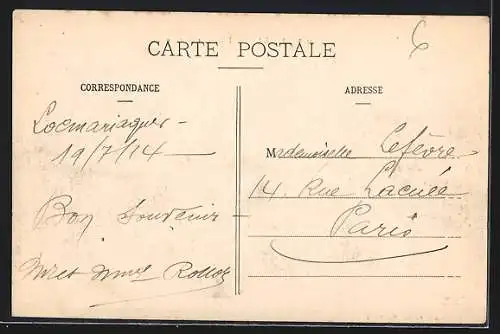 CARTE POSTALE
6
CORRESPONDANCE
ADRESSE
Locmariaquer -
19/7/14
Mademoiselle Lefèvre
14. Rue Lacuée
Paris
Bon Souvenir